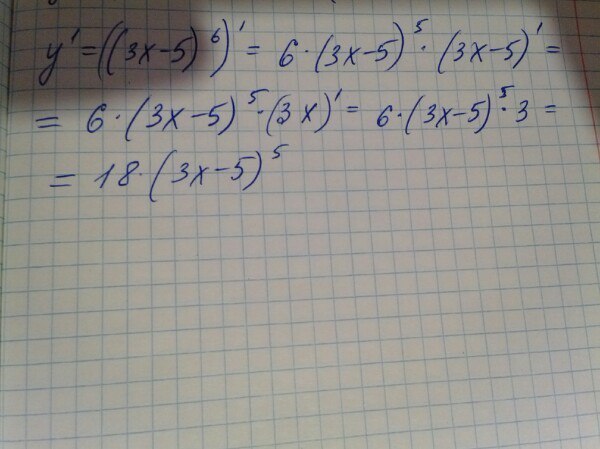 y' = ((3x-5)⁶)' = 6·(3x-5)⁵·(3x-5)' =
= 6·(3x-5)⁵·(3x)' = 6·(3x-5)⁵·3 =
= 18·(3x-5)⁵